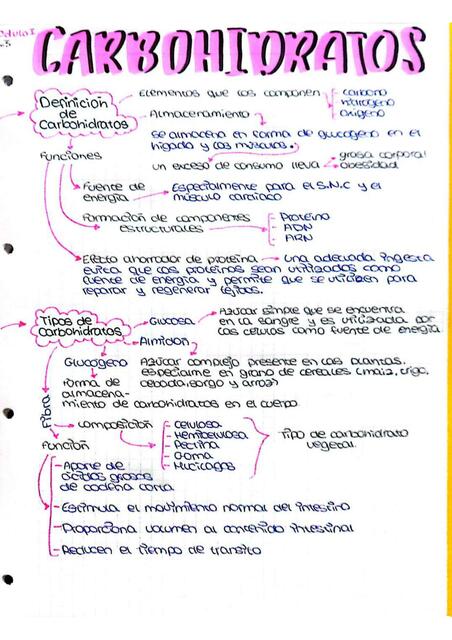 Módulo I
CARBOHIDRATOS
Definicion de Carbohidratos
Elementos que los componen
- Carbono
- Hidrógeno
- Oxígeno
Almacenamiento
Se almacena en forma de glucogeno en el
higado y los músculos.
un exceso de consumo lleva
grasa corporal
obesidad
Funciones
Fuente de energía
Especialmente para el S.N.C y el
músculo cardiaco
Formación de componentes
estructurales
- Proteina
- ADN
- ARN
Efecto ahorrador de proteina
Una adecuada ingesta
evita que las proteinas sean utilizadas como
fuente de energía y permite que se utilicen para
reparar y regenerar tejidos.
Tipos de carbohidratos
Glucosa
Azúcar simple que se encuentra
en la sangre y es utilizada por
las celulas como fuente de energía
Almidon
Azúcar complejo presente en las plantas.
especialme en grano de cereales (maiz, trigo,
cebada, sorgo y arroz)
Glucogeno
Forma de
almacena-
miento de carbohidratos en el cuerpo.
Fibra
composición
- Celulosa
- Hemicelulosa
- Pectina
- Goma
- Mucilagos
Tipo de carbohidrato
vegetal.
Función
- Aporte de
ácidos grasos
de cadena corta.
- Estimula el movimiento normal del intestino
- Proporciona volumen al contenido intestinal
- Reducen el tiempo de transito